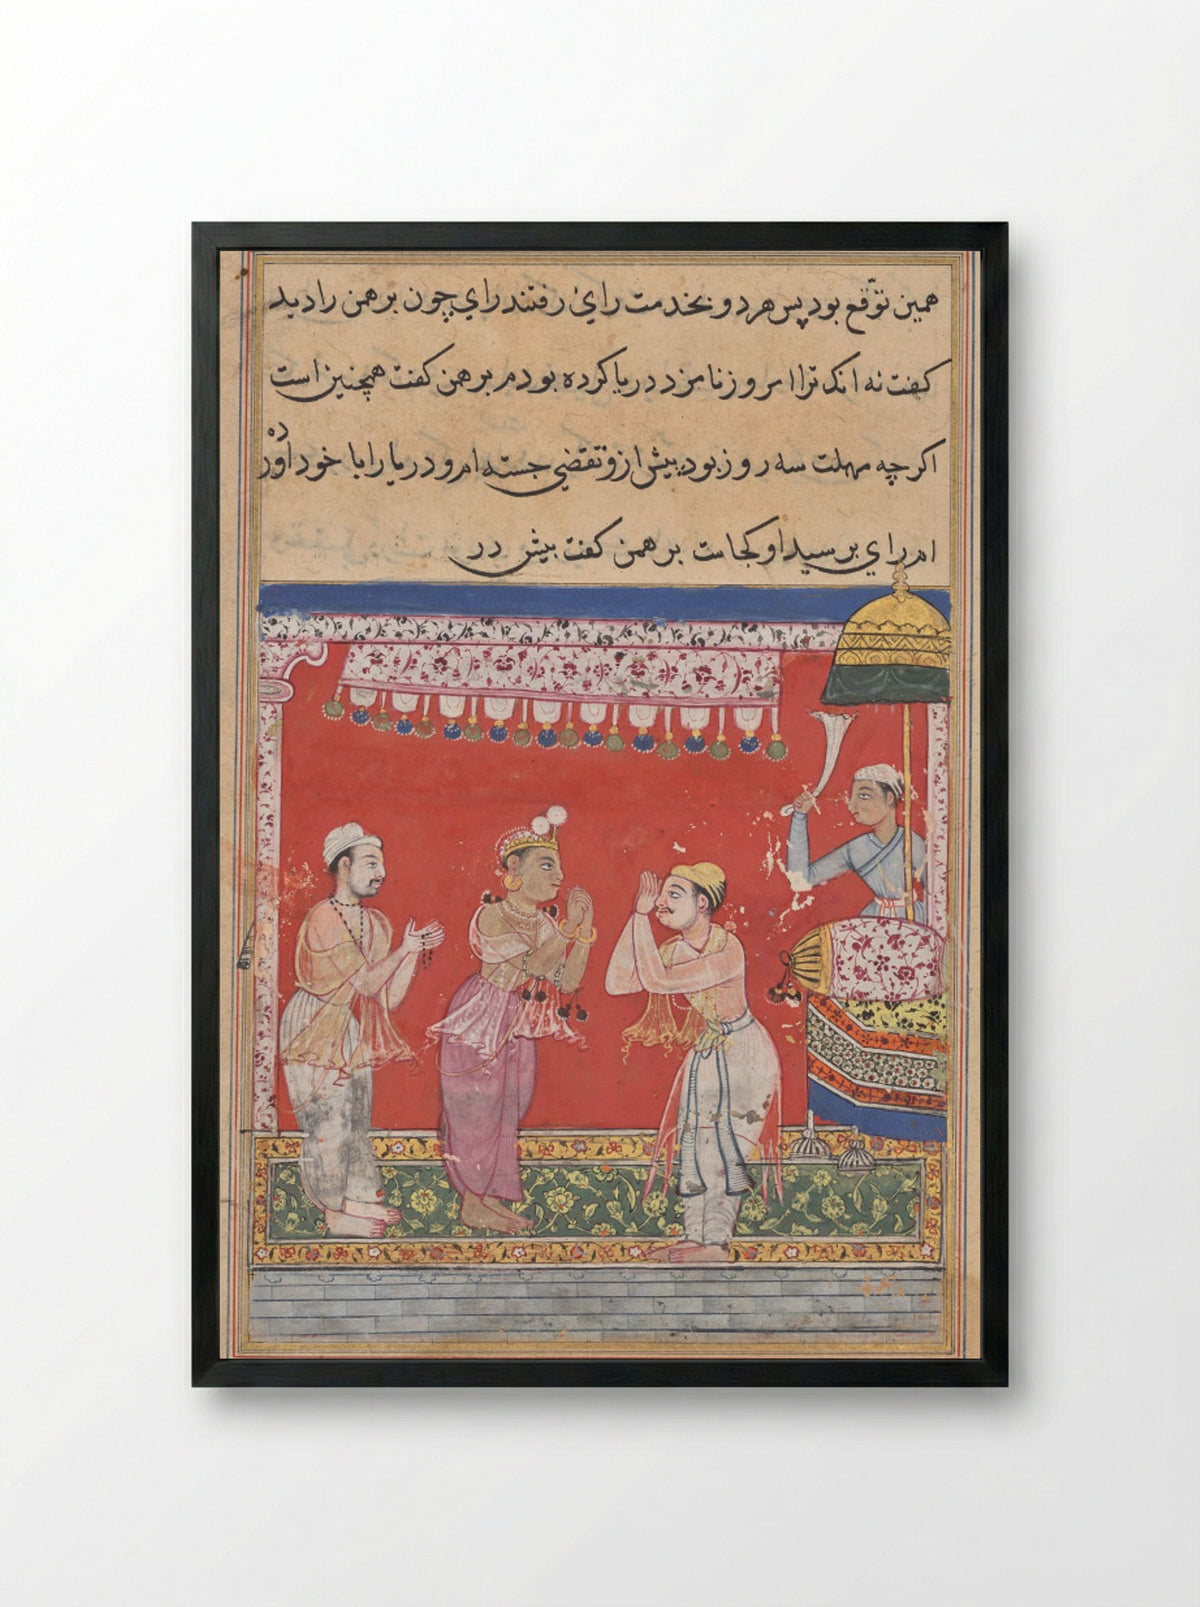 همین توّقع بود پس هر دو بخدمت رای رفتند رای چون برهمن را دید
کفت نه انک ترا امروز نامزد دریا کرده بودم برهمن کفت همچنین است
اکرچه مهلت سه روز بود بیش ازو تقضی جسته ام و دریا را با خود آورده
ام رای برسید او کجاست برهمن کفت بیش در